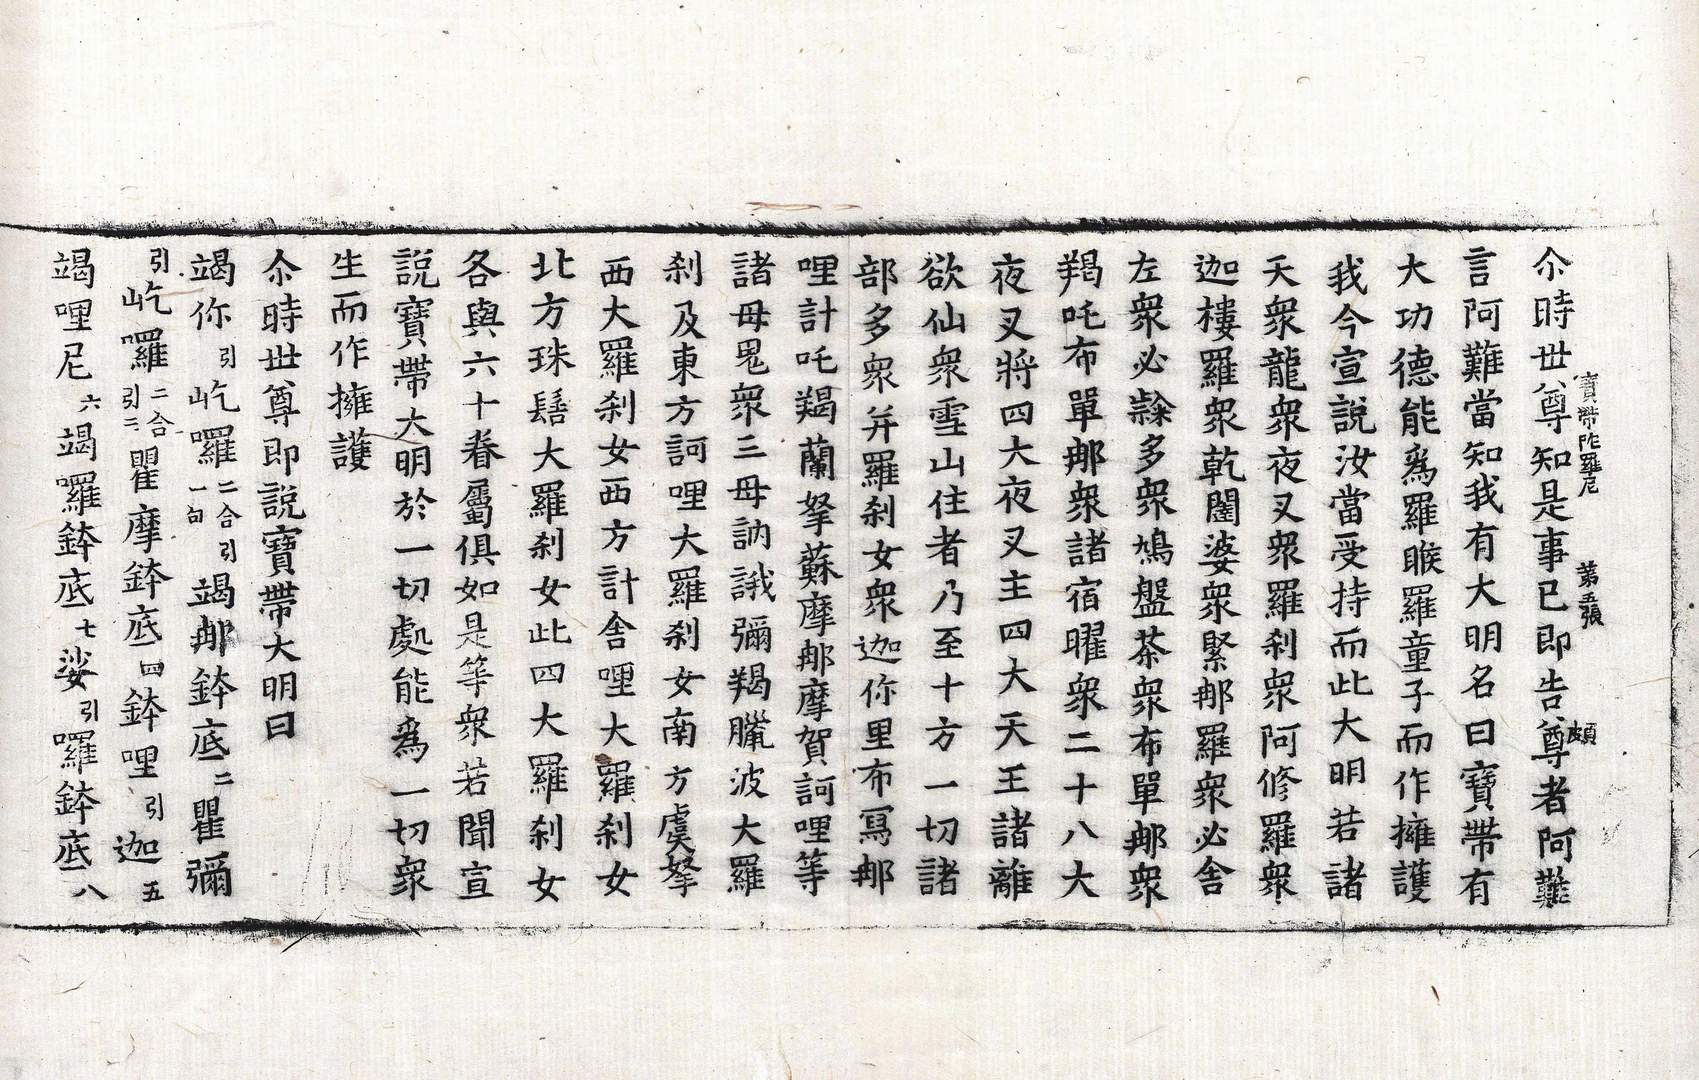 寶帶陁羅尼 第五張 頗
尒時世尊知是事已即告尊者阿難
言阿難當知我有大明名曰寶帶有
大功德能爲羅睺羅童子而作擁護
我今宣說汝當受持而此大明若諸
天衆龍衆夜叉衆羅刹衆阿修羅衆
迦樓羅衆乾闥婆衆緊那羅衆必舍
左衆必隸多衆鳩盤茶衆布單那衆
羯吒布單那衆諸宿曜衆二十八大
夜叉將四大夜叉主四大天王諸離
欲仙衆雪山住者乃至十方一切諸
部多衆并羅刹女衆迦你里布寫那
哩計吒羯蘭拏蘇摩那摩賀訶哩等
諸母鬼衆三母訥誐彌羯臘波大羅
刹及東方訶哩大羅刹女南方虞拏
西大羅刹女西方計舍哩大羅刹女
北方珠髻大羅刹女此四大羅刹女
各與六十眷屬俱如是等衆若聞宣
說寶帶大明於一切處能爲一切衆
生而作擁護
尒時世尊即說寶帶大明曰
竭你引屹囉二合引一句竭那鉢底二瞿彌
引屹囉二合引三瞿摩鉢底四鉢哩引迦五
竭哩尼六竭囉鉢底七娑引囉鉢底八